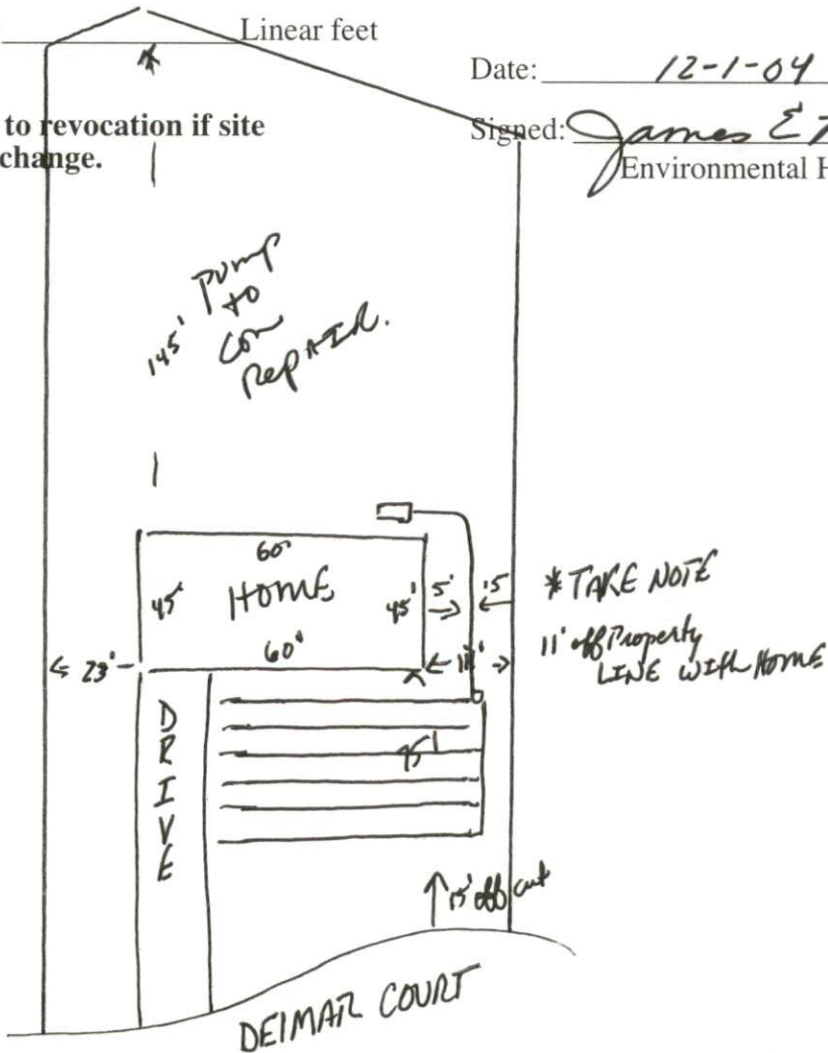 Linear feet
Date: 12-1-04
to revocation if site
change.
Signed: James E
Environmental H
145'
Pump
to
Repair.
60'
45' HOME 45' 5' 15
* TAKE NOTE
11' off Property
LINE with HOME
60'
23'
DRIVE
15' off cut
DEIMAR COURT